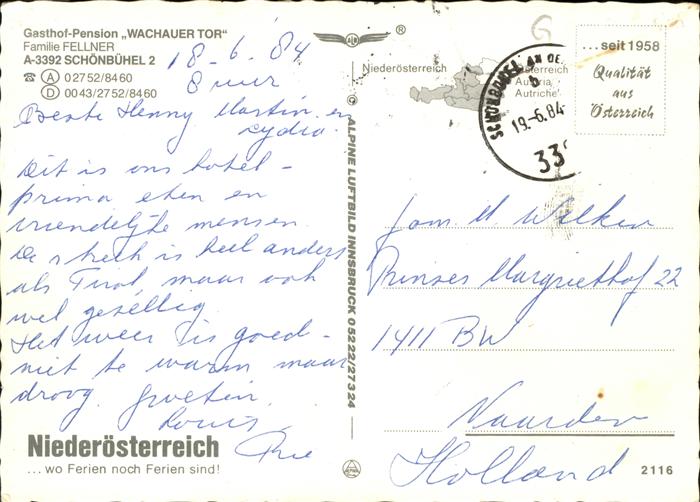 Gasthof-Pension „WACHAUER TOR"
Familie FELLNER
A-3392 SCHÖNBÜHEL 2
☎ Ⓐ 02752/8460
Ⓓ 0043/2752/8460
18-6-'84
8 uur
Beste Henny Martin en
Lydia.
Dit is ons hotel -
prima eten en
vriendelijke mensen
De streek is heel anders
als Tirol, maar ook
wel gezellig.
Het weer is goed -
niet te warm maar
droog. Groeten,
Louis
Rie
Niederösterreich
... wo Ferien noch Ferien sind!
ALPINE LUFTBILD INNSBRUCK 05222/27324
®
Niederösterreich
Österreich
Austria
Autriche
SCHÖNBÜHEL AN DE
b
19.-6.84-
33
G
...seit 1958
Qualität
aus
Österreich
Fam. M. Wilken
Prinses Margriethof 22
1411 BW
Naarden
Holland
2116